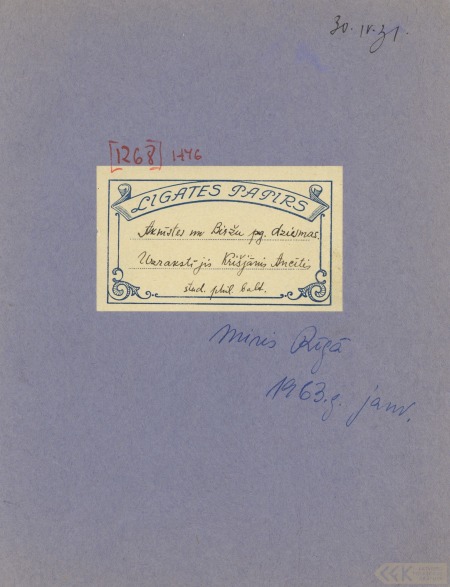 30. IV. 31.
[1268] 1476
LIGATES PAPIRS
Aknīstes un Biržu pg. dziesmas.
Uzrakstījis Krišjānis Ancītis
stud. phil. balt.
Miris Rīgā
1963. g. janv.